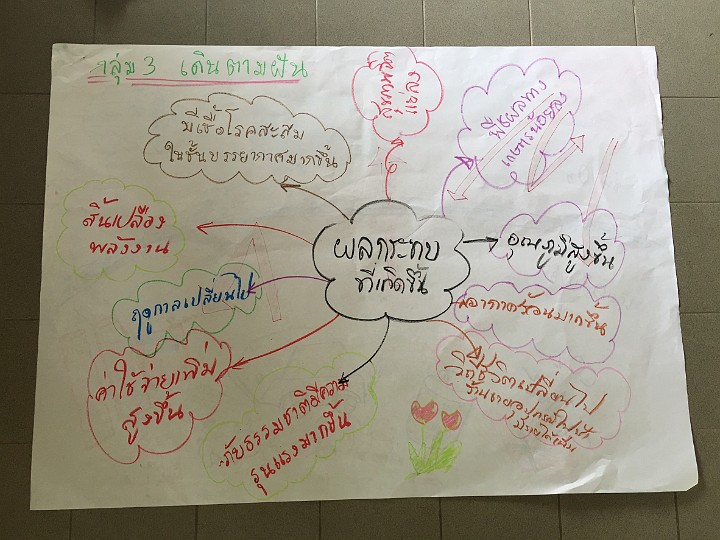 กลุ่ม 3 เดินตามฝัน
สุขภาพจิต
แย่ลง
พืชผลทาง
เกษตรน้อยลง
มีเชื้อโรคสะสม
ในชั้นบรรยากาศมากขึ้น
สิ้นเปลือง
พลังงาน
ผลกระทบ
ที่เกิดขึ้น
อุณหภูมิสูงขึ้น
ฤดูกาลเปลี่ยนไป
อากาศร้อนมากขึ้น
ค่าใช้จ่ายเพิ่ม
สูงขึ้น
ภัยธรรมชาติมีความ
รุนแรงมากขึ้น
วิถีชีวิตเปลี่ยนไป
ร้านขายอุปกรณ์ไฟฟ้า
มีรายได้เพิ่ม